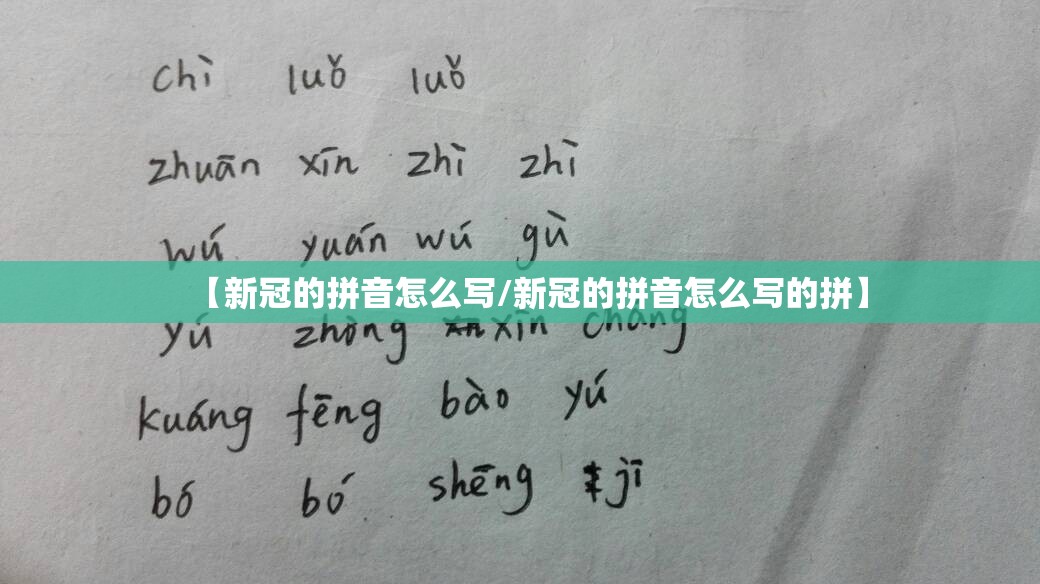 chì luǒ luǒ
zhuān xīn zhì zhì
wú yuán wú gù
【新冠的拼音怎么写/新冠的拼音怎么写的拼】
yú zhòng xīn chang
kuáng fēng bào yú
bó bó shēng jī